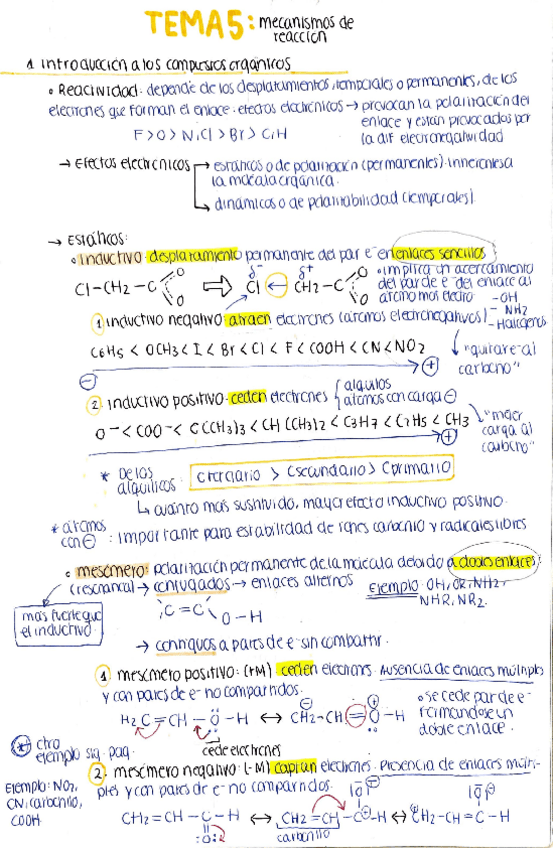 TEMA 5: mecanismos de
reacción
1. Introducción a los compuestos orgánicos
• Reactividad: depende de los desplazamientos, temporales o permanentes, de los
electrones que forman el enlace. efectos electrónicos → provocan la polarización del
enlace y están provocados por
la dif electronegatividad
F > O > N, Cl > Br > C, H
→ Efectos electrónicos → estáticos o de polarización (permanentes). Inherentes a
la molécula orgánica.
→ dinámicos o de polarizabilidad (temporales)
→ Estáticos:
• inductivo: desplazamiento permanente del par e⁻ en enlaces sencillos
Cl-CH2-C O O ⇒ δ⁻ Cl ← δ⁺ CH2-C O O
• implica un acercamiento
del par de e⁻ del enlace al
átomo más electro
1 inductivo negativo: atraen electrones (átomos electronegativos)
-OH
-NH2
-Halógenos
C6H5 < OCH3 < I < Br < Cl < F < COOH < CN < NO2
⊖ ⊕
"quitar e⁻ al
carbono"
2. inductivo positivo: ceden electrones
alquilos
átomos con carga ⊖
O⁻ < COO⁻ < C(CH3)3 < CH(CH3)2 < C3H7 < C2H5 < CH3
⊕
"meter
carga al
carbono"
* De los
alquílicos:
Cterciario > Csecundario > Cprimario
↳ cuanto más sustituido, mayor efecto inductivo positivo.
* átomos
con ⊖ : importante para estabilidad de iones carbonio y radicales libres
• mesómero: polarización permanente de la molécula debido a dobles enlaces
(resonancia) → conjugados → enlaces alternos
Ejemplo: OH, OR, NH2,
NHR, NR2.
más fuerte que
el inductivo.
C=C O-H
→ contiguos a pares de e⁻ sin compartir.
1 mesómero positivo: (+M) ceden electrones. Ausencia de enlaces múltiples
y con pares de e⁻ no compartidos.
H2C=CH-O-H ↔ CH2-CH=O-H
⊖ ⊕
• se cede par de e⁻
formándose un
doble enlace.
* otro
ejemplo sig. pag.
cede electrones
2. mesómero negativo: (-M) captan electrones. Presencia de enlaces múlti-
ples y con pares de e⁻ no compartidos.
Ejemplo: NO2,
CN, carbonilo,
COOH.
CH2=CH-C-H ↔ CH2=CH-C-H ↔ CH2-CH=C-H
O
carbonilo